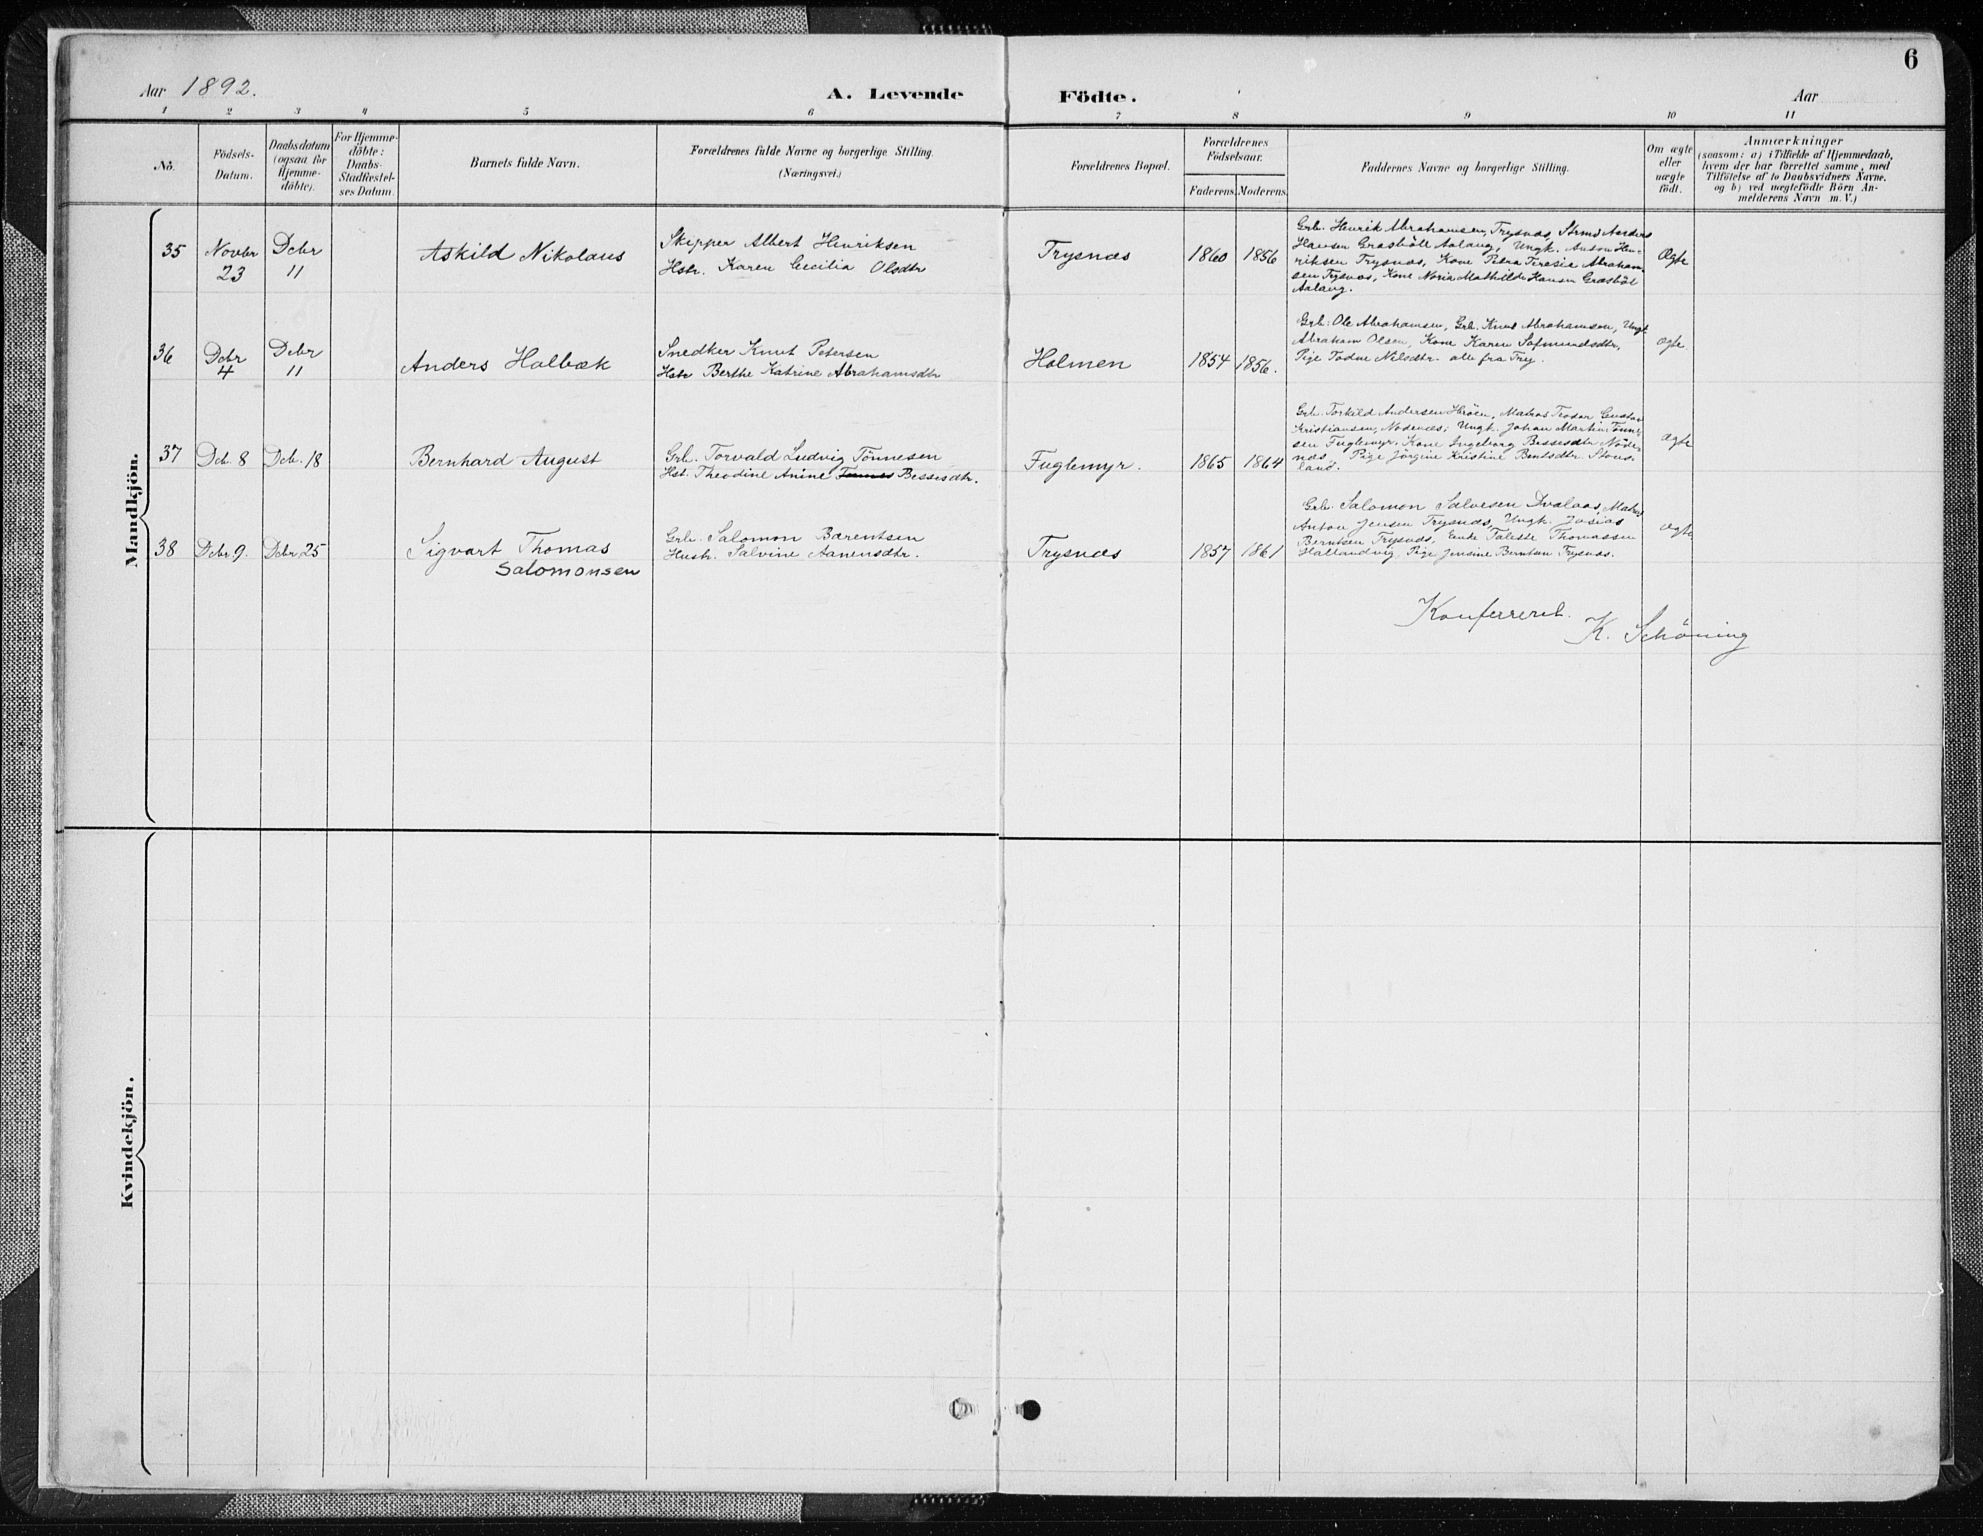 6
Aar 1892.
A. Levende Födte.
Aar
1 2 3 4 5 6 7 8 9 10 11
No.
Födsels-
Datum.
Daabsdatum
(ogsaa for
Hjemme-
döbte).
For Hjemme-
döbte:
Daabs-
Stadfæstel-
ses Datum.
Barnets fulde Navn.
Forældrenes fulde Navne og borgerlige Stilling.
(Næringsvei.)
Forældrenes Bopæl.
Forældrenes
Födselsaar.
Faderens. Moderens.
Faddernes Navne og borgerlige Stilling.
Om ægte
eller
uægte
födt.
Anmærkninger
(saasom: a) i Tilfælde af Hjemmedaab,
hvem der har forrettet samme, med
Tilföielse af to Daabsvidners Navne,
og b) ved uægtefödte Börn An-
melderens Navn m. V.)
Mandkjön.
35
Novbr
23
Dcbr
11
Askild Nikolaus
Skipper Albert Henriksen
Hstr. Karen Cecilia Olsdtr
Trysnæs
1860 1856
Grb. Henrik Abrahamsen, Trysnæs, Strms Anders
Hansen Grasböll Aalaug, Ungk. Anton Hen-
riksen Trysnæs, Kone Petra Teresie Abraham-
sen Trysnæs, Kone Mathilde Hansen Grasböl
Aalaug.
Ægte
36
Dcbr
4
Dcbr
11
Anders Holbæk
Snedker Knut Petersen
Hstr Berthe Katrine Abrahamsdtr
Holmen
1854 1856.
Grb. Ole Abrahamsen, Grb. Knut Abrahamsen, Ungk
Abraham Olsen, Kone Karen Sofmundsdtr,
Pige Todne Nilsdtr. alle fra Try.
ægte
37
Dcb. 8
Dcb. 18
Bernhard August
Grb. Torvald Ludvig Tönnesen
Hst. Theodine Anine Tønnes Bessesdtr.
Fuglemyr.
1865 1864
Grb. Torkild Andersen Hröen, Matros Teodor Gustav
Kristiansen, Nodenæs; Ungk. Johan Martin Tönne-
sen Fuglemyr. Kone Ingeborg Bessesdtr Nöde-
næs. Pige Jörgine Kristine Bentsdtr. Stous-
land.
ægte
38
Dcbr 9.
Dcbr 25
Sigvart Thomas
Salomonsen
Grb. Salomon Barentsen
Hustr. Salvine Aanensdtr.
Trysnæs
1857 1861
Grb. Salomon Salvesen Dvalaas, Matros
Anton Jensen Trysnæs, Ungk. Josias
Berntsen Trysnæs, Enke Taleste Thomassen
Hallandvig Pige Jensine Berntsen Trysnæs.
ægte
Konfereret.
K. Schöning
Kvindekjön.